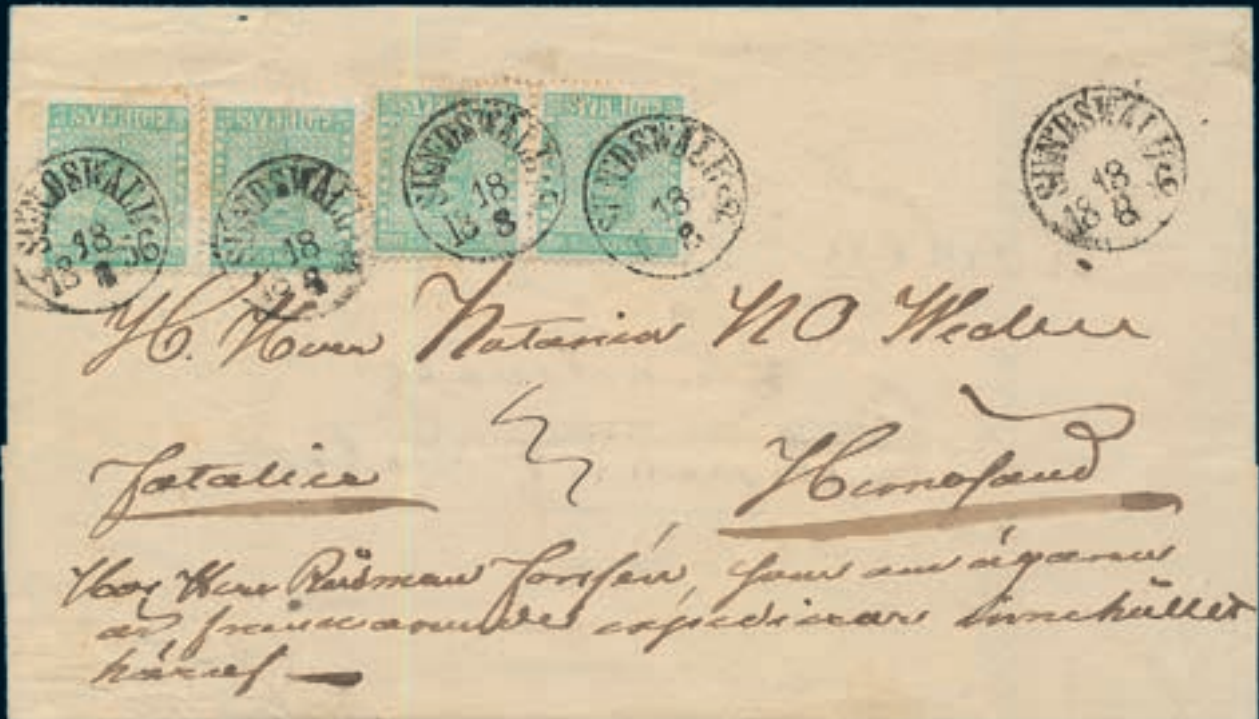 SVERIGE SVERIGE SVERIGE SVERIGE
SUNDSWALL 18 8 1856
SUNDSWALL 18 8 18
SUNDSWALL 18 8 18
SUNDSWALL 18 8
SUNDSWALL 18 8 18
H. Herr Notarien NO Wedin
fatalier Hernösand
Hos Herr Rådman Forssén, som om ägaren
är frånvarande expedierar innehållet
häraf —